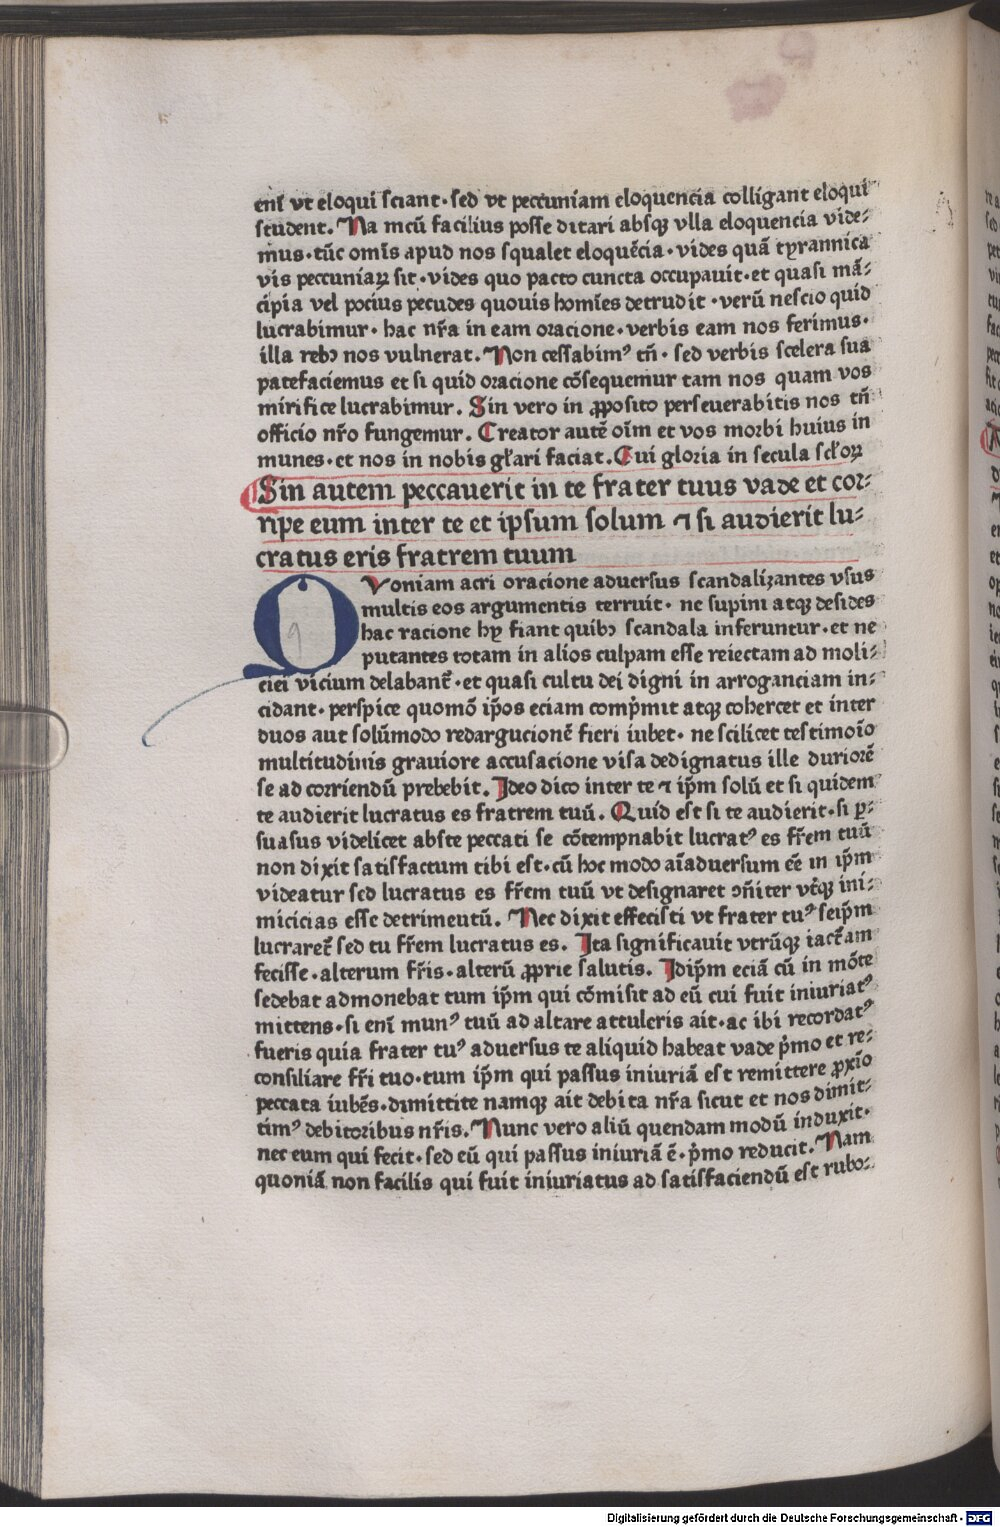 enī vt eloqui sciant·sed vt peccuniam eloquencia colligant eloqui
student. Na mcū facilius posse ditari absqꝫ vlla eloquencia vide⸗
mus·tūc omīs apud nos squalet eloquēcia·vides quā tyrannica
vis peccuniaꝝ sit·vides quo pacto cuncta occupauit·et quasi mā⸗
cipia vel pocius pecudes quouis homīes detrudit·verū nescio quid
lucrabimur·hac nr̄a in eam oracione·verbis eam nos ferimus·
illa rebꝫ nos vulnerat. Non cessabimꝰ tn̄·sed verbis scelera sua
patefaciemus et si quid oracione cōsequemur tam nos quam vos
mirifice lucrabimur. Sin vero in ꝓposito perseuerabitis nos tn̄
officio nr̄o fungemur. Creator autē oīm et vos morbi huius in
munes·et nos in nobis gl̄ari faciat. Cui gloria in secula scl̄oꝝ
Sin autem peccauerit in te frater tuus vade et cor⸗
ripe eum inter te et ipsum solum ⁊ si audierit lu⸗
cratus eris fratrem tuum
QVoniam acri oracione aduersus scandalizantes vsus
multis eos argumentis terruit·ne supini atqꝫ desides
hac racione hy fiant quibꝫ scandala inferuntur·et ne
putantes totam in alios culpam esse reiectam ad moli⸗
ciei vicium delabant̄·et quasi cultu dei digni in arroganciam in⸗
cidant·perspice quomō ip̄os eciam comp̄mit atqꝫ cohercet et inter
duos aut solūmodo redargucionē fieri iubet·ne scilicet testimoīo
multitudinis grauiore accusacione visa dedignatus ille duriorē
se ad corriendū prebebit. Ideo dico inter te ⁊ ip̄m solū et si quidem
te audierit lucratus es fratrem tuū. Quid est si te audierit·si ꝑ⸗
suasus videlicet abste peccati se cōtempnabit lucratꝰ es fr̄em tuū
non dixit satisfactum tibi est·cū hoc modo aīaduersum eē in ip̄m
videatur sed lucratus es fr̄em tuū vt designaret ↄn̄iter vt̄qꝫ ini⸗
micicias esse detrimentū. Nec dixit effecisti vt frater tuꝰ seip̄m
lucraret̄ sed tu fr̄em lucratus es. Ita significauit vtrūqꝫ iact̄am
fecisse·alterum fr̄is·alterū ꝓprie salutis. Idip̄m eciā cū in mōte
sedebat admonebat tum ip̄m qui cōmisit ad eū cui fuit iniuriatꝰ
mittens·si enī munꝰ tuū ad altare attuleris ait·ac ibi recordatꝰ
fueris quia frater tuꝰ aduersus te aliquid habeat vade p̄mo et re⸗
consiliare fr̄i tuo·tum ip̄m qui passus iniuriā est remittere ꝓxīo
peccata iubēs·dimittite namqꝫ ait debita nr̄a sicut et nos dimit⸗
timꝰ debitoribus nr̄is. Nunc vero aliū quendam modū induxit·
nec eum qui fecit·sed eū qui passus iniuriā ē·p̄mo reducit. Nam
quoniā non facilis qui fuit iniuriatus ad satisfaciendū est rubo⸗
Digitalisierung gefördert durch die Deutsche Forschungsgemeinschaft - DFG